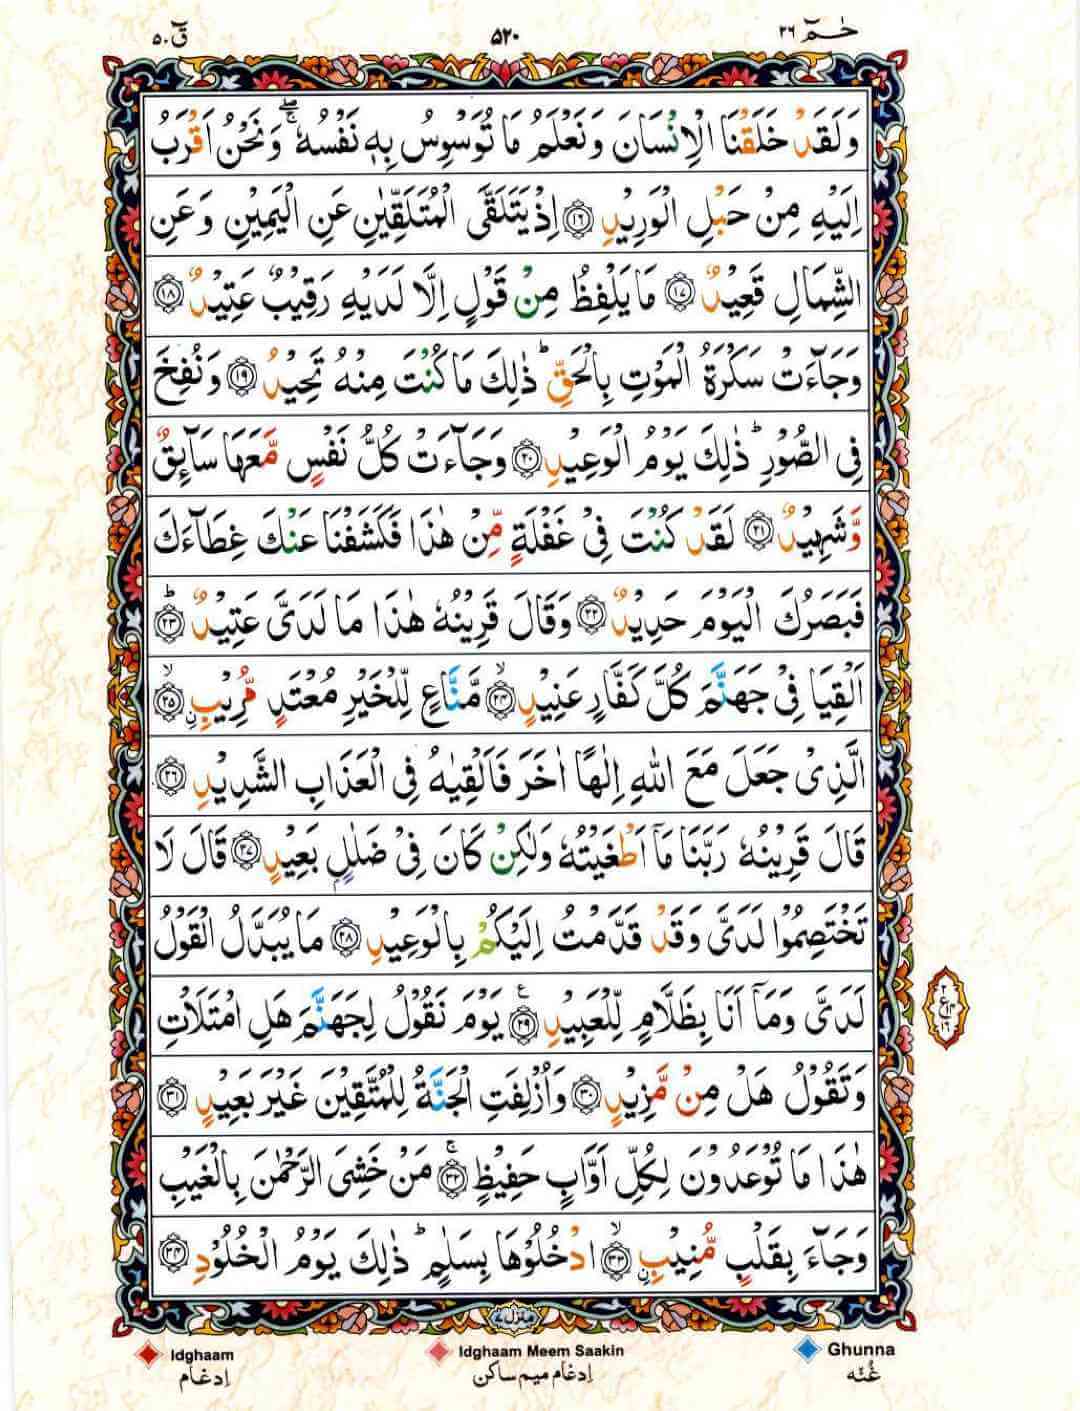 حٰمٓ ٢٦
٥٢٠
قٓ ٥٠
وَلَقَدْ خَلَقْنَا الْاِنْسَانَ وَنَعْلَمُ مَا تُوَسْوِسُ بِهٖ نَفْسُهٗ ۖۚ وَنَحْنُ اَقْرَبُ
اِلَيْهِ مِنْ حَبْلِ الْوَرِيْدِ ﴿١٦﴾ اِذْ يَتَلَقَّى الْمُتَلَقِّيٰنِ عَنِ الْيَمِيْنِ وَعَنِ
الشِّمَالِ قَعِيْدٌ ﴿١٧﴾ مَا يَلْفِظُ مِنْ قَوْلٍ اِلَّا لَدَيْهِ رَقِيْبٌ عَتِيْدٌ ﴿١٨﴾
وَجَآءَتْ سَكْرَةُ الْمَوْتِ بِالْحَقِّ ؕ ذٰلِكَ مَا كُنْتَ مِنْهُ تَحِيْدُ ﴿١٩﴾ وَنُفِخَ
فِى الصُّوْرِ ؕ ذٰلِكَ يَوْمُ الْوَعِيْدِ ﴿٢٠﴾ وَجَآءَتْ كُلُّ نَفْسٍ مَّعَهَا سَآئِقٌ
وَّشَهِيْدٌ ﴿٢١﴾ لَقَدْ كُنْتَ فِىْ غَفْلَةٍ مِّنْ هٰذَا فَكَشَفْنَا عَنْكَ غِطَآءَكَ
فَبَصَرُكَ الْيَوْمَ حَدِيْدٌ ﴿٢٢﴾ وَقَالَ قَرِيْنُهٗ هٰذَا مَا لَدَىَّ عَتِيْدٌ ؕ ﴿٢٣﴾
اَلْقِيَا فِىْ جَهَنَّمَ كُلَّ كَفَّارٍ عَنِيْدٍ ۙ ﴿٢٤﴾ مَّنَّاعٍ لِّلْخَيْرِ مُعْتَدٍ مُّرِيْبٍ ۙ ﴿٢٥﴾
الَّذِىْ جَعَلَ مَعَ اللّٰهِ اِلٰهًا اٰخَرَ فَاَلْقِيٰهُ فِى الْعَذَابِ الشَّدِيْدِ ﴿٢٦﴾
قَالَ قَرِيْنُهٗ رَبَّنَا مَآ اَطْغَيْتُهٗ وَلٰكِنْ كَانَ فِىْ ضَلٰلٍۢ بَعِيْدٍ ﴿٢٧﴾ قَالَ لَا
تَخْتَصِمُوْا لَدَىَّ وَقَدْ قَدَّمْتُ اِلَيْكُمْ بِالْوَعِيْدِ ﴿٢٨﴾ مَا يُبَدَّلُ الْقَوْلُ
لَدَىَّ وَمَآ اَنَا بِظَلَّامٍ لِّلْعَبِيْدِ ﴿٢٩﴾ يَوْمَ نَقُوْلُ لِجَهَنَّمَ هَلِ امْتَلَاْتِ
وَتَقُوْلُ هَلْ مِنْ مَّزِيْدٍ ﴿٣٠﴾ وَاُزْلِفَتِ الْجَنَّةُ لِلْمُتَّقِيْنَ غَيْرَ بَعِيْدٍ ﴿٣١﴾
هٰذَا مَا تُوْعَدُوْنَ لِكُلِّ اَوَّابٍ حَفِيْظٍ ۚ ﴿٣٢﴾ مَنْ خَشِىَ الرَّحْمٰنَ بِالْغَيْبِ
وَجَآءَ بِقَلْبٍ مُّنِيْبٍ ۙ ﴿٣٣﴾ ادْخُلُوْهَا بِسَلٰمٍ ؕ ذٰلِكَ يَوْمُ الْخُلُوْدِ ﴿٣٤﴾
٢
ع ١٤
١٦
منزل ٧
Idghaam
Idghaam Meem Saakin
Ghunna
اِدغام
اِدغام میم ساکن
غُنّه